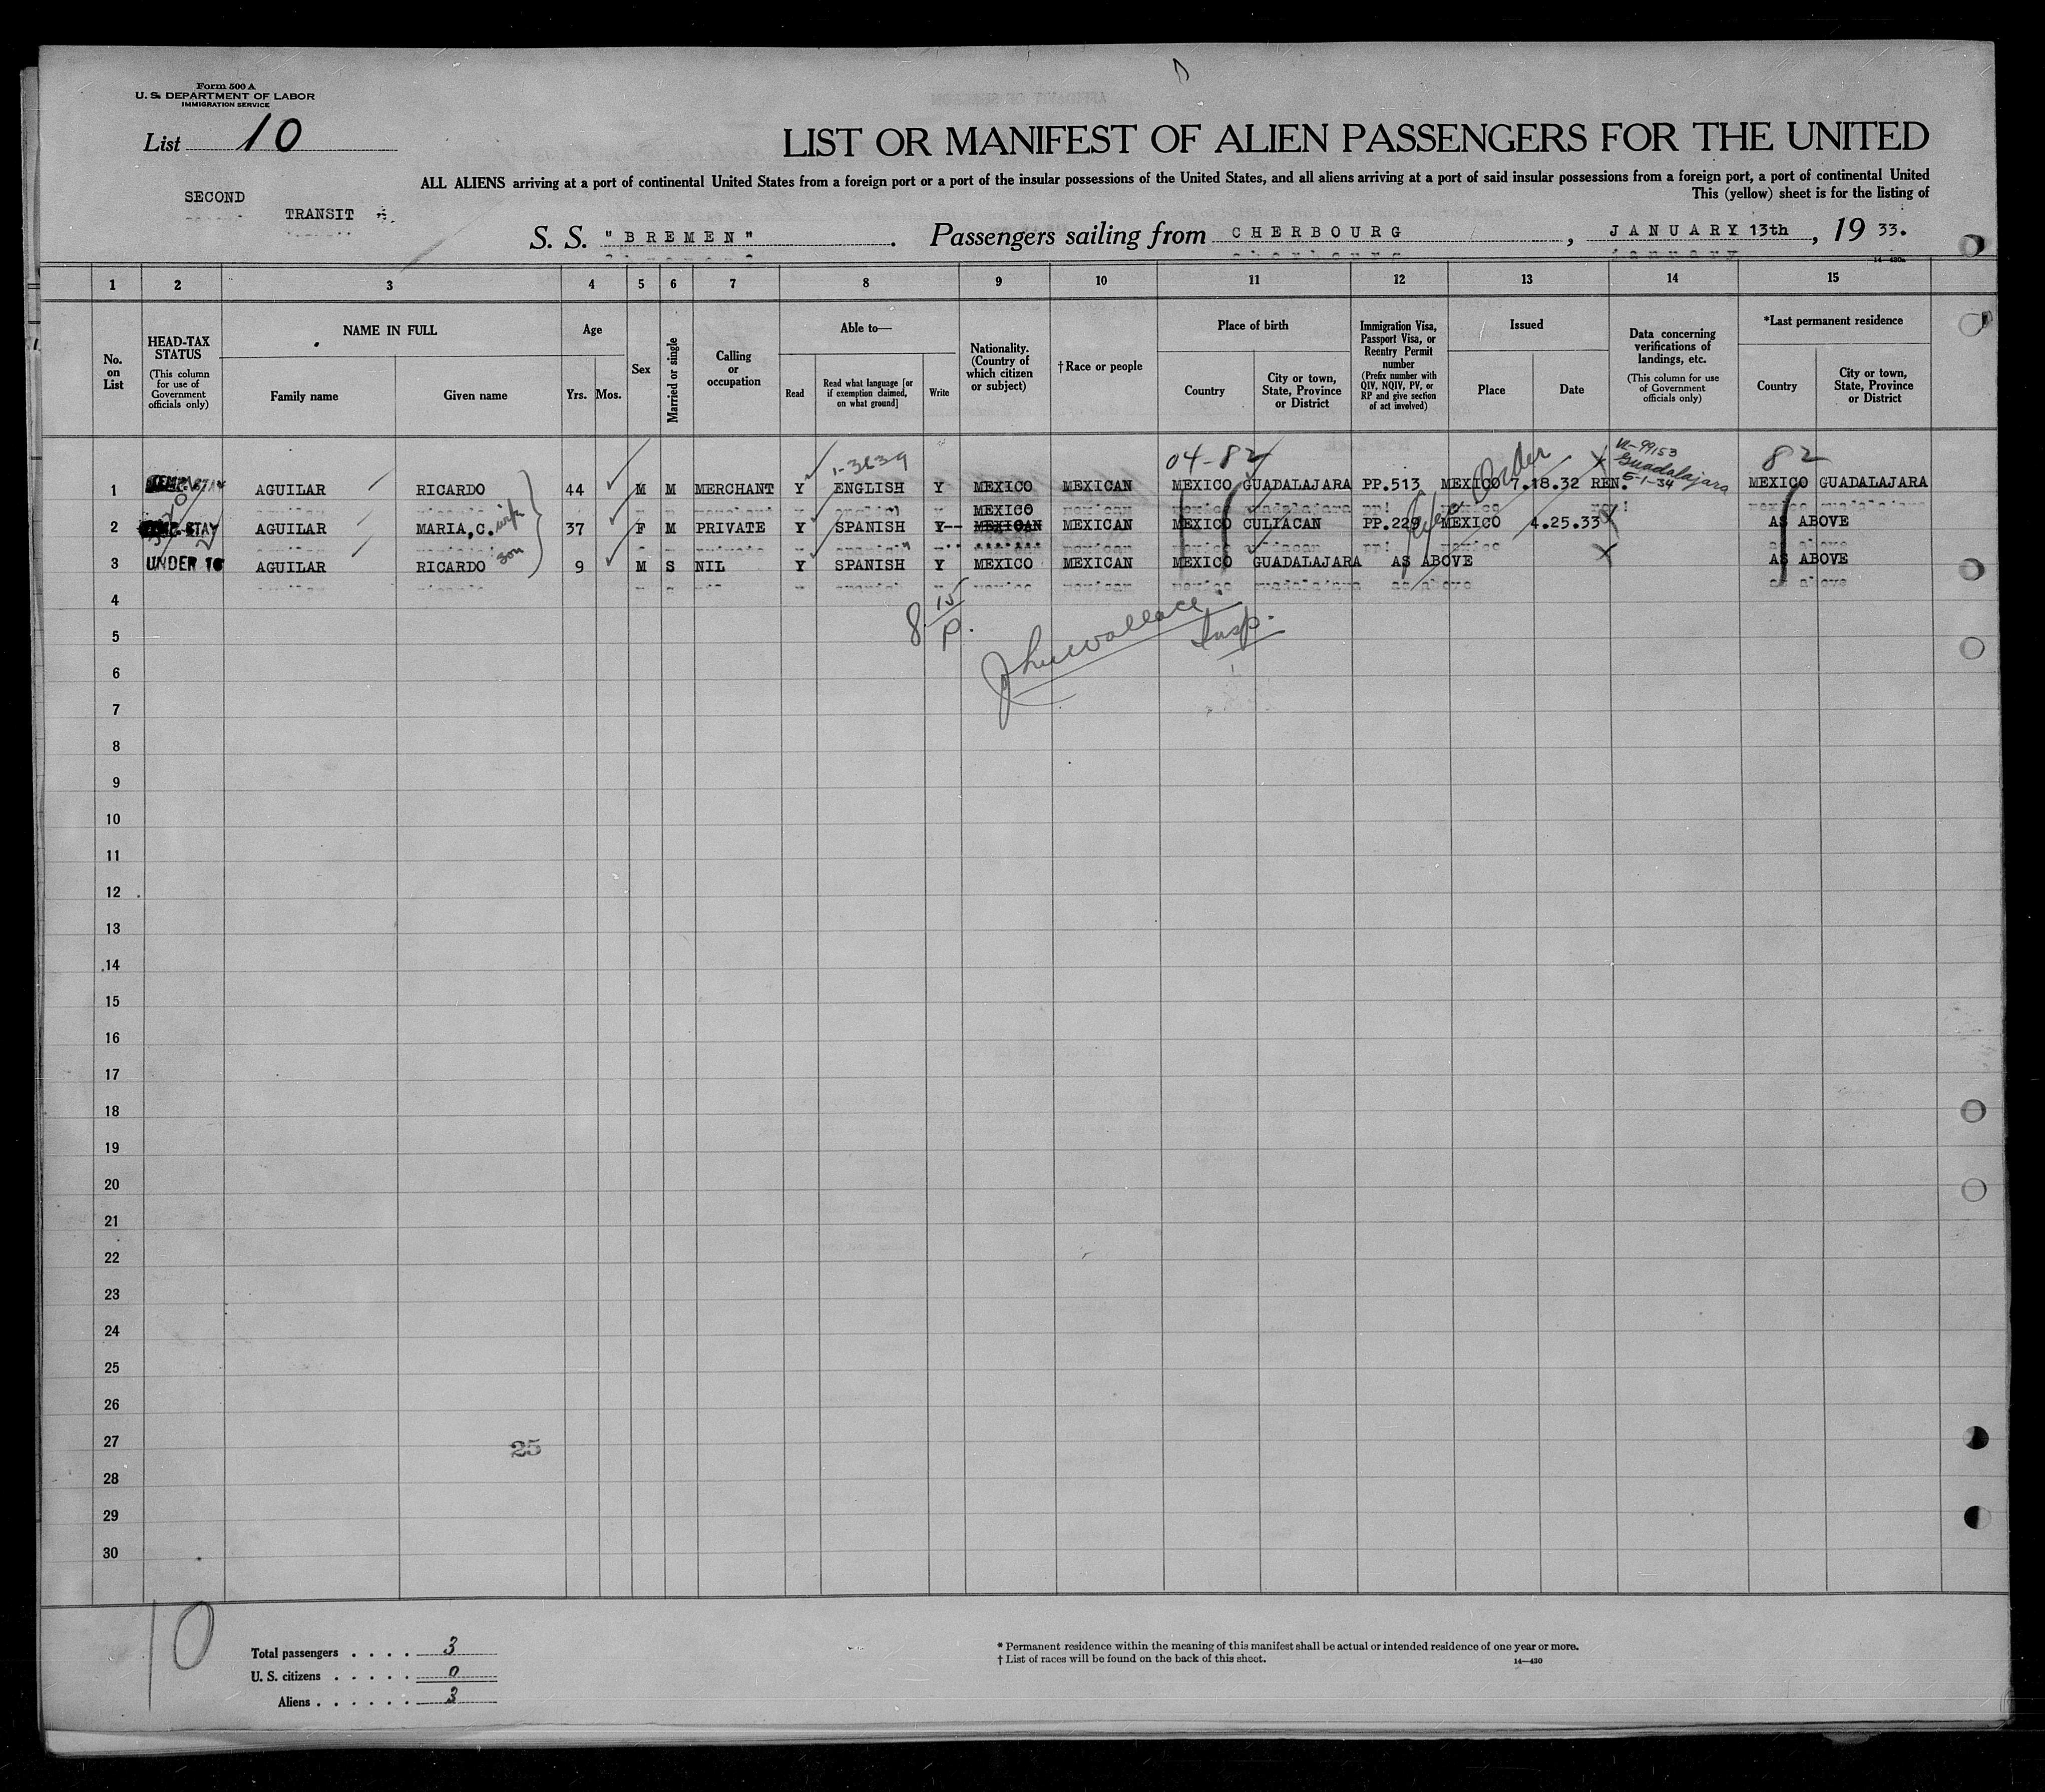 Form 500 A
U. S. DEPARTMENT OF LABOR
IMMIGRATION SERVICE
List 10
LIST OR MANIFEST OF ALIEN PASSENGERS FOR THE UNITED
ALL ALIENS arriving at a port of continental United States from a foreign port or a port of the insular possessions of the United States, and all aliens arriving at a port of said insular possessions from a foreign port, a port of continental United
This (yellow) sheet is for the listing of
SECOND
TRANSIT
S. S. "BREMEN". Passengers sailing from CHERBOURG, JANUARY 13th, 19 33.
14—430a
1 2 3 4 5 6 7 8 9 10 11 12 13 14 15
No. on List
HEAD-TAX STATUS (This column for use of Government officials only)
NAME IN FULL
Family name
Given name
Age
Yrs. Mos.
Sex
Married or single
Calling or occupation
Able to—
Read
Read what language [or if exemption claimed, on what ground]
Write
Nationality. (Country of which citizen or subject)
†Race or people
Place of birth
Country
City or town, State, Province or District
Immigration Visa, Passport Visa, or Reentry Permit number (Prefix number with QIV, NQIV, PV, or RP and give section of act involved)
Issued
Place
Date
Data concerning verifications of landings, etc. (This column for use of Government officials only)
*Last permanent residence
Country
City or town, State, Province or District
1-3639
04-82
Order
99153
Guadalajara
5-1-34
82
1 AGUILAR RICARDO 44 M M MERCHANT Y ENGLISH Y MEXICO MEXICAN MEXICO GUADALAJARA PP.513 MEXICO 7.18.32 REN. MEXICO GUADALAJARA
MEXICO
2 STAY AGUILAR MARIA,C. wife 37 F M PRIVATE Y SPANISH Y-- MEXICAN MEXICAN MEXICO CULIACAN PP.229 MEXICO 4.25.33 AS ABOVE
3 UNDER 16 AGUILAR RICARDO son 9 M S NIL Y SPANISH Y MEXICO MEXICAN MEXICO GUADALAJARA AS ABOVE AS ABOVE
8 15/P.
Wallace Insp.
4
5
6
7
8
9
10
11
12
13
14
15
16
17
18
19
20
21
22
23
24
25
26
27
25
28
29
30
10
Total passengers . . . . 3
U. S. citizens . . . . . 0
Aliens . . . . . . 3
* Permanent residence within the meaning of this manifest shall be actual or intended residence of one year or more.
† List of races will be found on the back of this sheet.
14—430